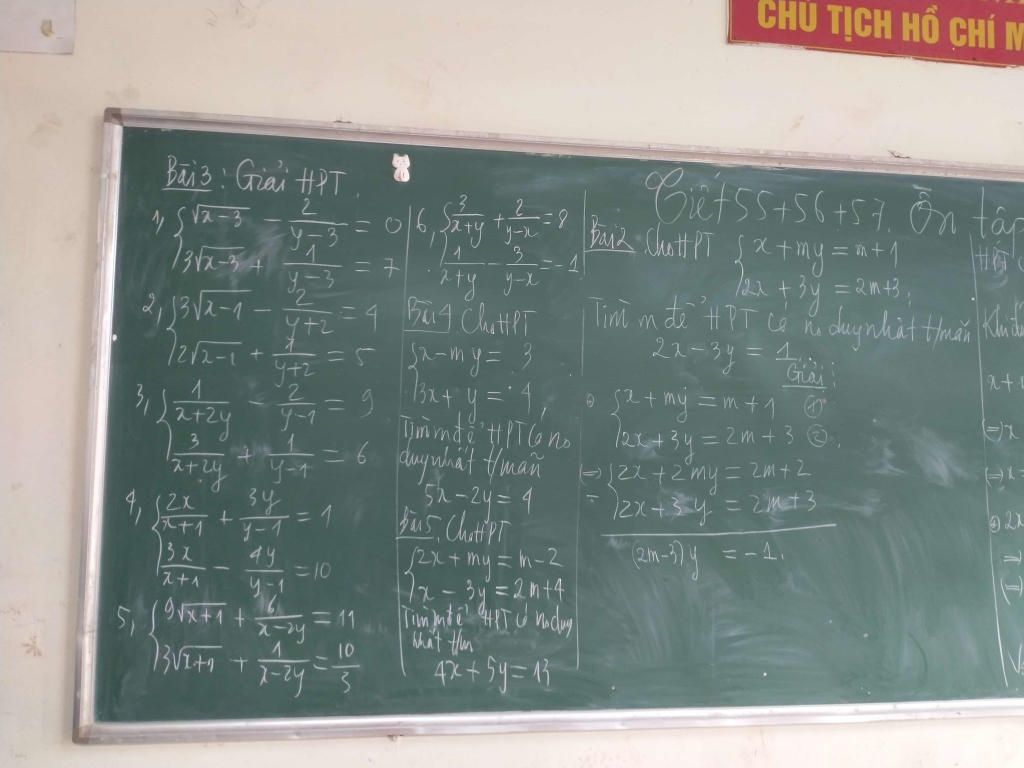 CHỦ TỊCH HỒ CHÍ M
Bài 3: Giải HPT
1, { √x-3 - 2/(y-3) = 0
3√x-3 + 1/(y-3) = 7
2, { 3√x-1 - 2/(y+2) = 4
2√x-1 + 1/(y+2) = 5
3, { 1/(x+2y) - 2/(y-1) = 9
3/(x+2y) + 1/(y-1) = 6
4, { 2x/(x+1) + 3y/(y-1) = 1
3x/(x+1) - 4y/(y-1) = 10
5, { 9√x+1 + 6/(x-2y) = 11
3√x+1 + 1/(x-2y) = 10/3
6, { 3/(x+y) + 2/(y-x) = 8
1/(x+y) - 3/(y-x) = -1
Bài 4 Cho HPT
{ x - my = 3
3x + y = 4
Tìm m để HPT có no
duy nhất t/mãn
5x - 2y = 4
Bài 5, Cho HPT
{ 2x + my = m - 2
x - 3y = 2m + 4
Tìm m để HPT có no duy
nhất t/m
4x + 5y = 13
Tiết 55+56+57. Ôn tập
Bài 2. Cho HPT { x + my = m + 1
2x + 3y = 2m + 3
Tìm m để HPT có no duy nhất t/mãn
2x - 3y = 1
Giải:
{ x + my = m + 1 ①
2x + 3y = 2m + 3 ②
(=) { 2x + 2my = 2m + 2
2x + 3y = 2m + 3
(2m-3)y = -1